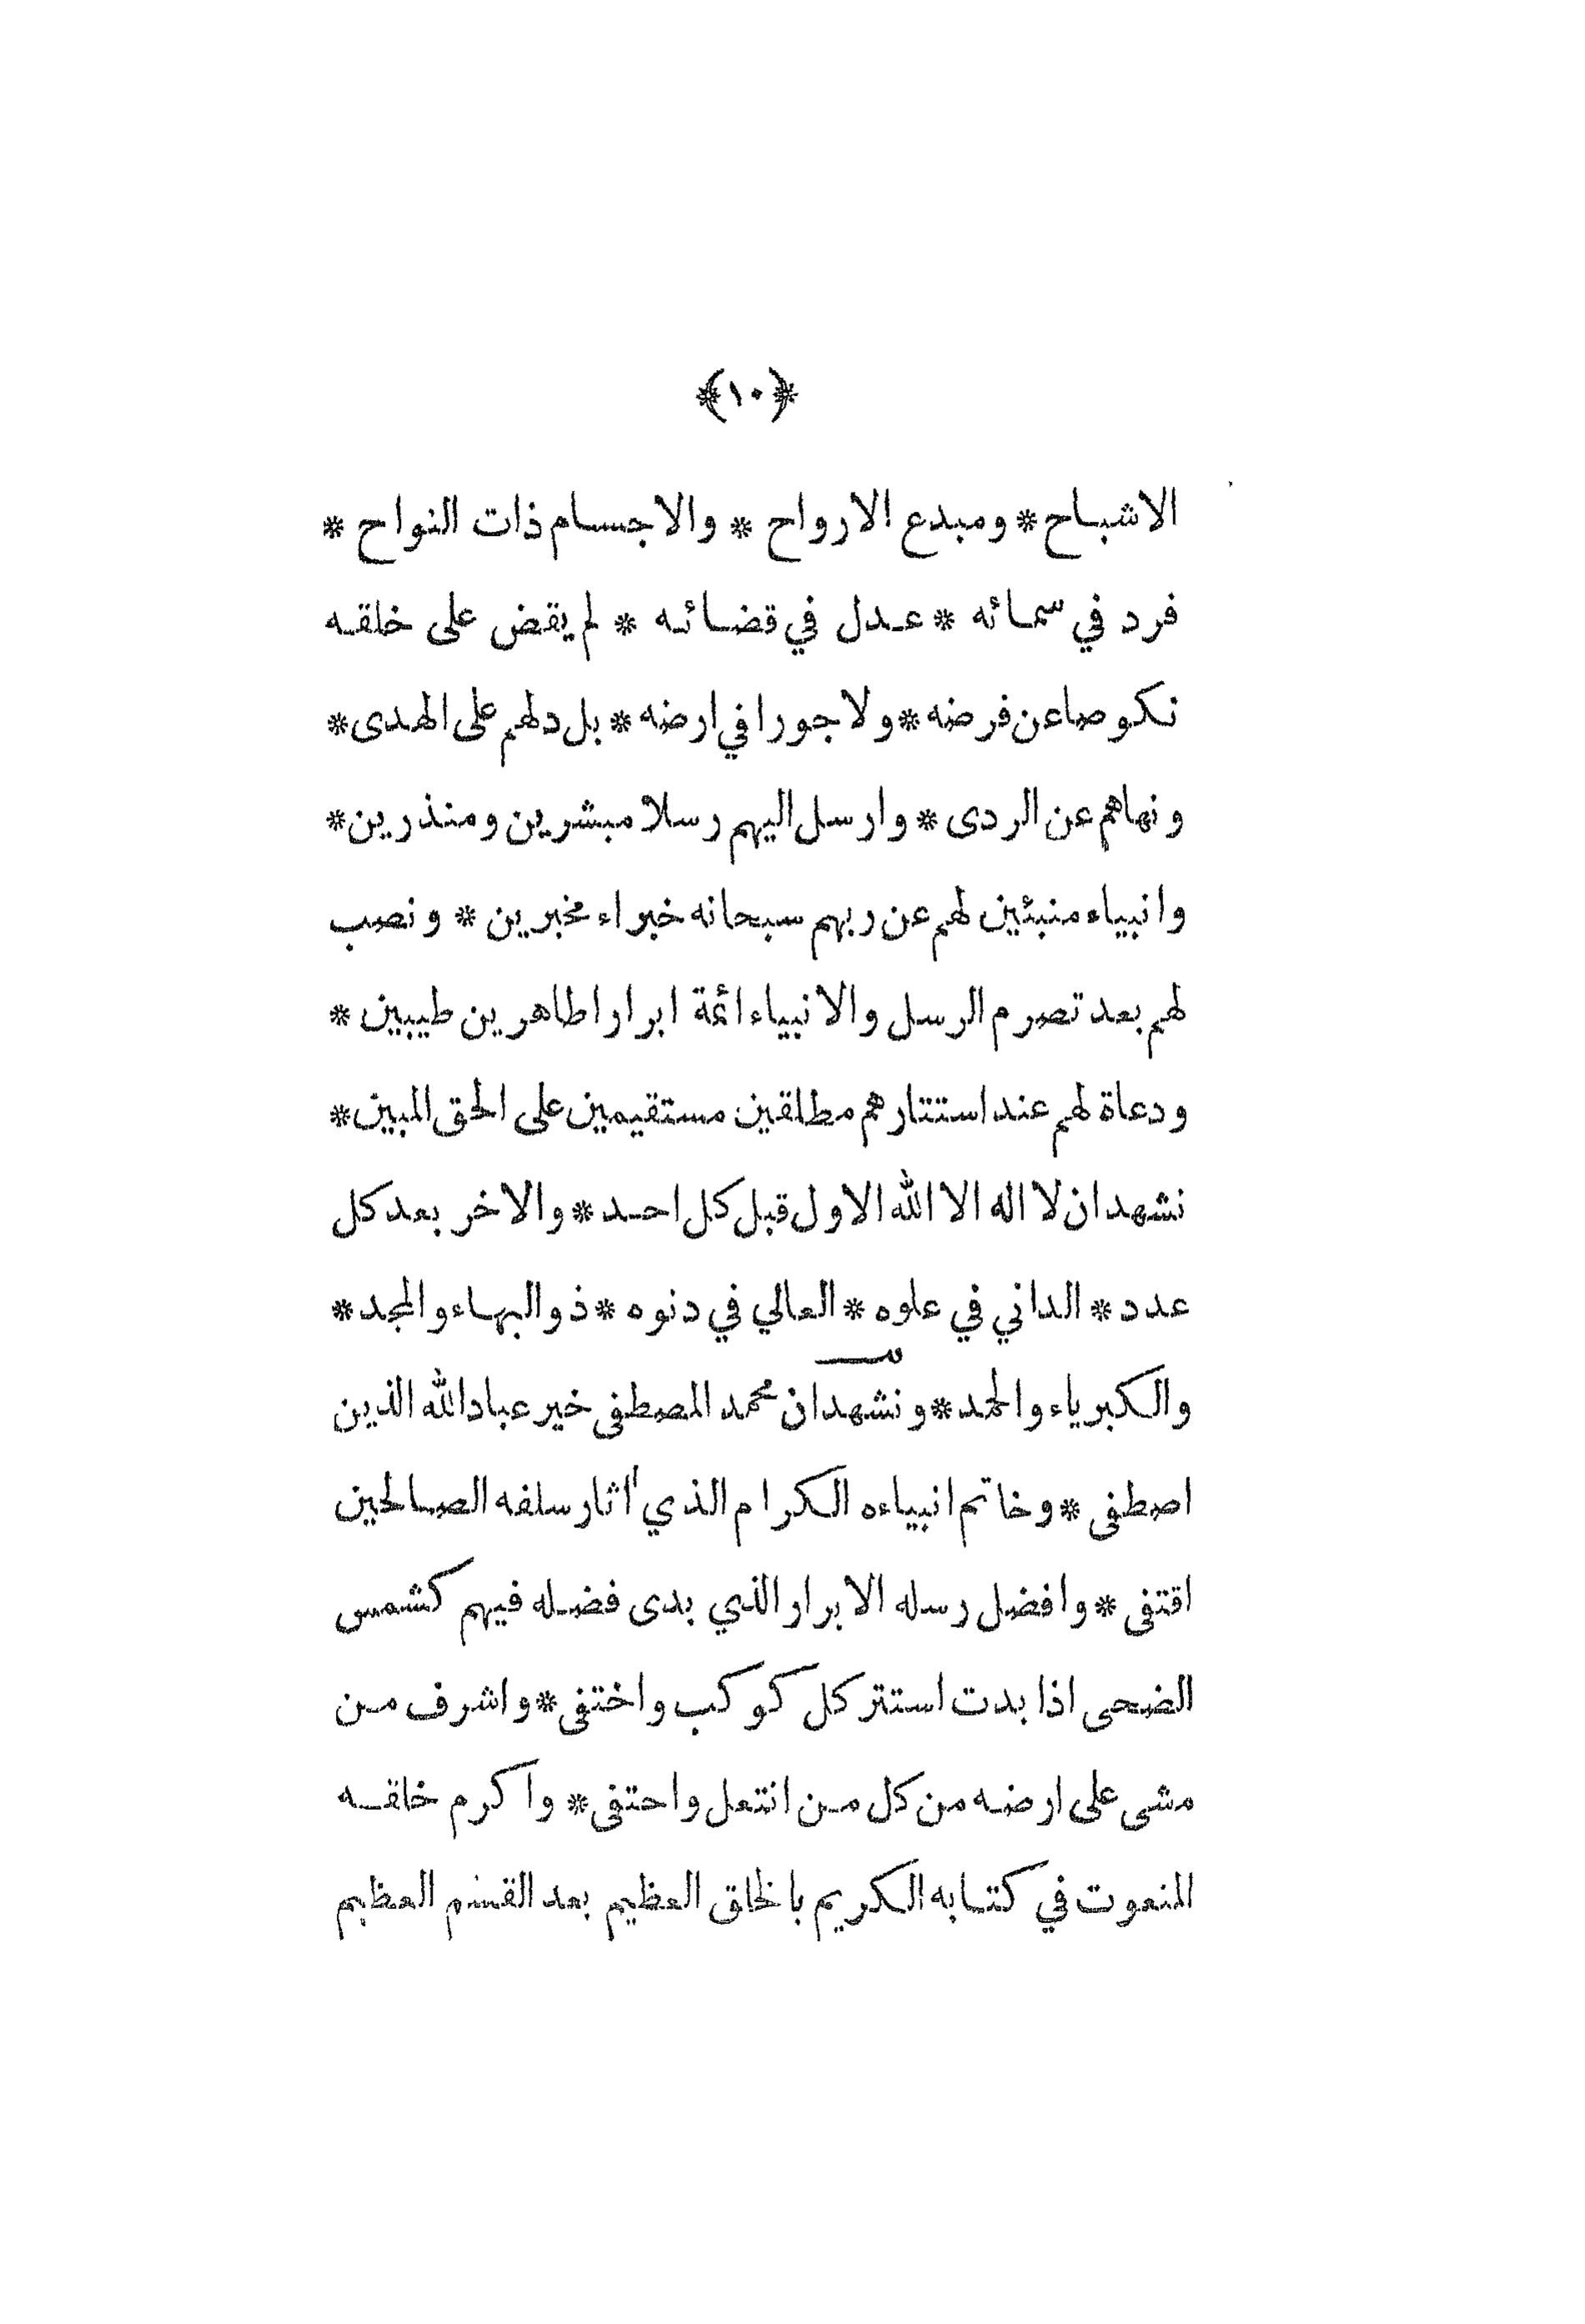 ﴿١٠﴾
الاشباح * ومبدع الارواح * والاجسام ذات النواح *
فرد في سمائه * عدل في قضائه * لم يقض على خلقه
نكوصا عن فرضه * ولا جورا في ارضه * بل دلهم على الهدى *
ونهاهم عن الردى * وارسل اليهم رسلا مبشرين ومنذرين *
وانبياء منبئين لهم عن ربهم سبحانه خبراء مخبرين * ونصب
لهم بعد تصرم الرسل والانبياء ائمة ابرارا طاهرين طيبين *
ودعاة لهم عند استتارهم مطلقين مستقيمين على الحق المبين *
نشهد ان لا اله الا الله الاول قبل كل احد * والاخر بعد كل
عدد * الداني في علوه * العالي في دنوه * ذو البهاء والمجد *
والكبرياء والحمد * ونشهد ان محمد المصطفى خير عباد الله الذين
اصطفى * وخاتم انبياءه الكرام الذي اثار سلفه الصالحين
اقتفى * وافضل رسله الابرار الذي بدى فضله فيهم كشمس
الضحى اذا بدت استتر كل كوكب واختفى * واشرف من
مشى على ارضه من كل من انتعل واحتفى * واكرم خلقه
المنعوت في كتابه الكريم بالخلق العظيم بعد القسم العظيم